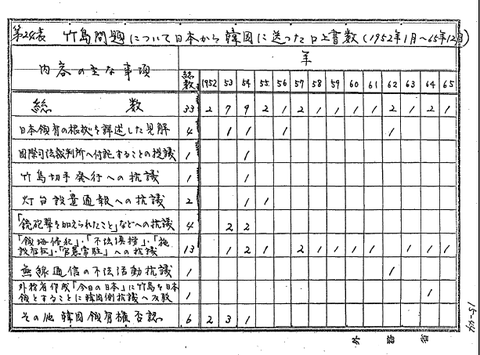 第24表 竹島問題について日本から韓国に送った口上書数(1952年1月〜65年12月)
内容の主な事項 総数 年
1952 53 54 55 56 57 58 59 60 61 62 63 64 65
総数 33 2 7 9 2 1 2 1 1 1 1 2 1 2 1
日本領有の根拠を詳述した見解 4 1 1 1 1
国際司法裁判所へ付託することの提議 1 1
竹島切手発行への抗議 1 1
灯台設置通報への抗議 2 1 1
「銃砲撃を加えられたこと」などへの抗議 4 2 2
「領海侵犯」・「不法侵搾」・「施
設
」・「官憲常駐」への抗議 13 1 2 1 2 1 1 1 1 1 1 1
無線通信の不法活動抗議 1 1
外務省作成「今日の日本」に竹島を日本
領とすることに韓国側抗議へ反駁 1 1
その他韓国領有権否認 6 2 3 1
外務省